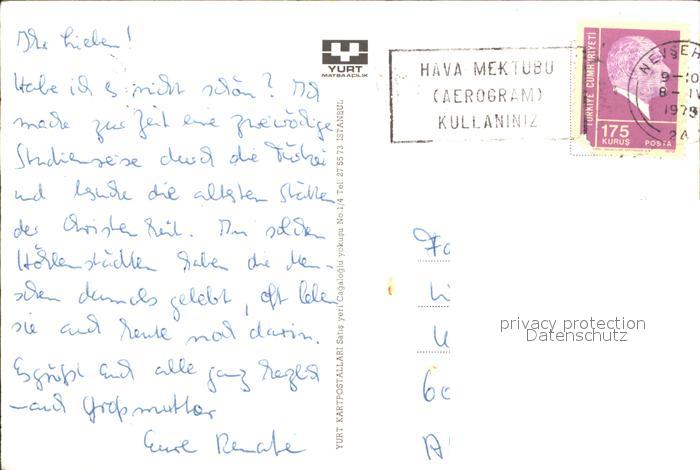 Ihr Lieben!
Habe ich es nicht schön? Ich
mache zur Zeit eine zweiwöchige
Studienreise durch die Türkei
und besuche die ältesten Stätten
der Christenheit. In solchen
Höhlenstädten haben die Men-
schen damals gelebt, oft leben
sie auch heute noch darin.
Es grüßt Euch alle ganz herzlich
– auch Großmutter
Eure Renate
YURT
MATBAACILIK
YURT KARTPOSTALLARI Satış yeri Cağaloğlu yokuşu No.1/4 Tel: 27 85 73 İSTANBUL
HAVA MEKTUBU
(AEROGRAM)
KULLANINIZ
TÜRKİYE CUMHURİYETİ
175
KURUŞ POSTA
NEVŞEH
9-10
8-IV
1979
privacy protection
Datenschutz
60